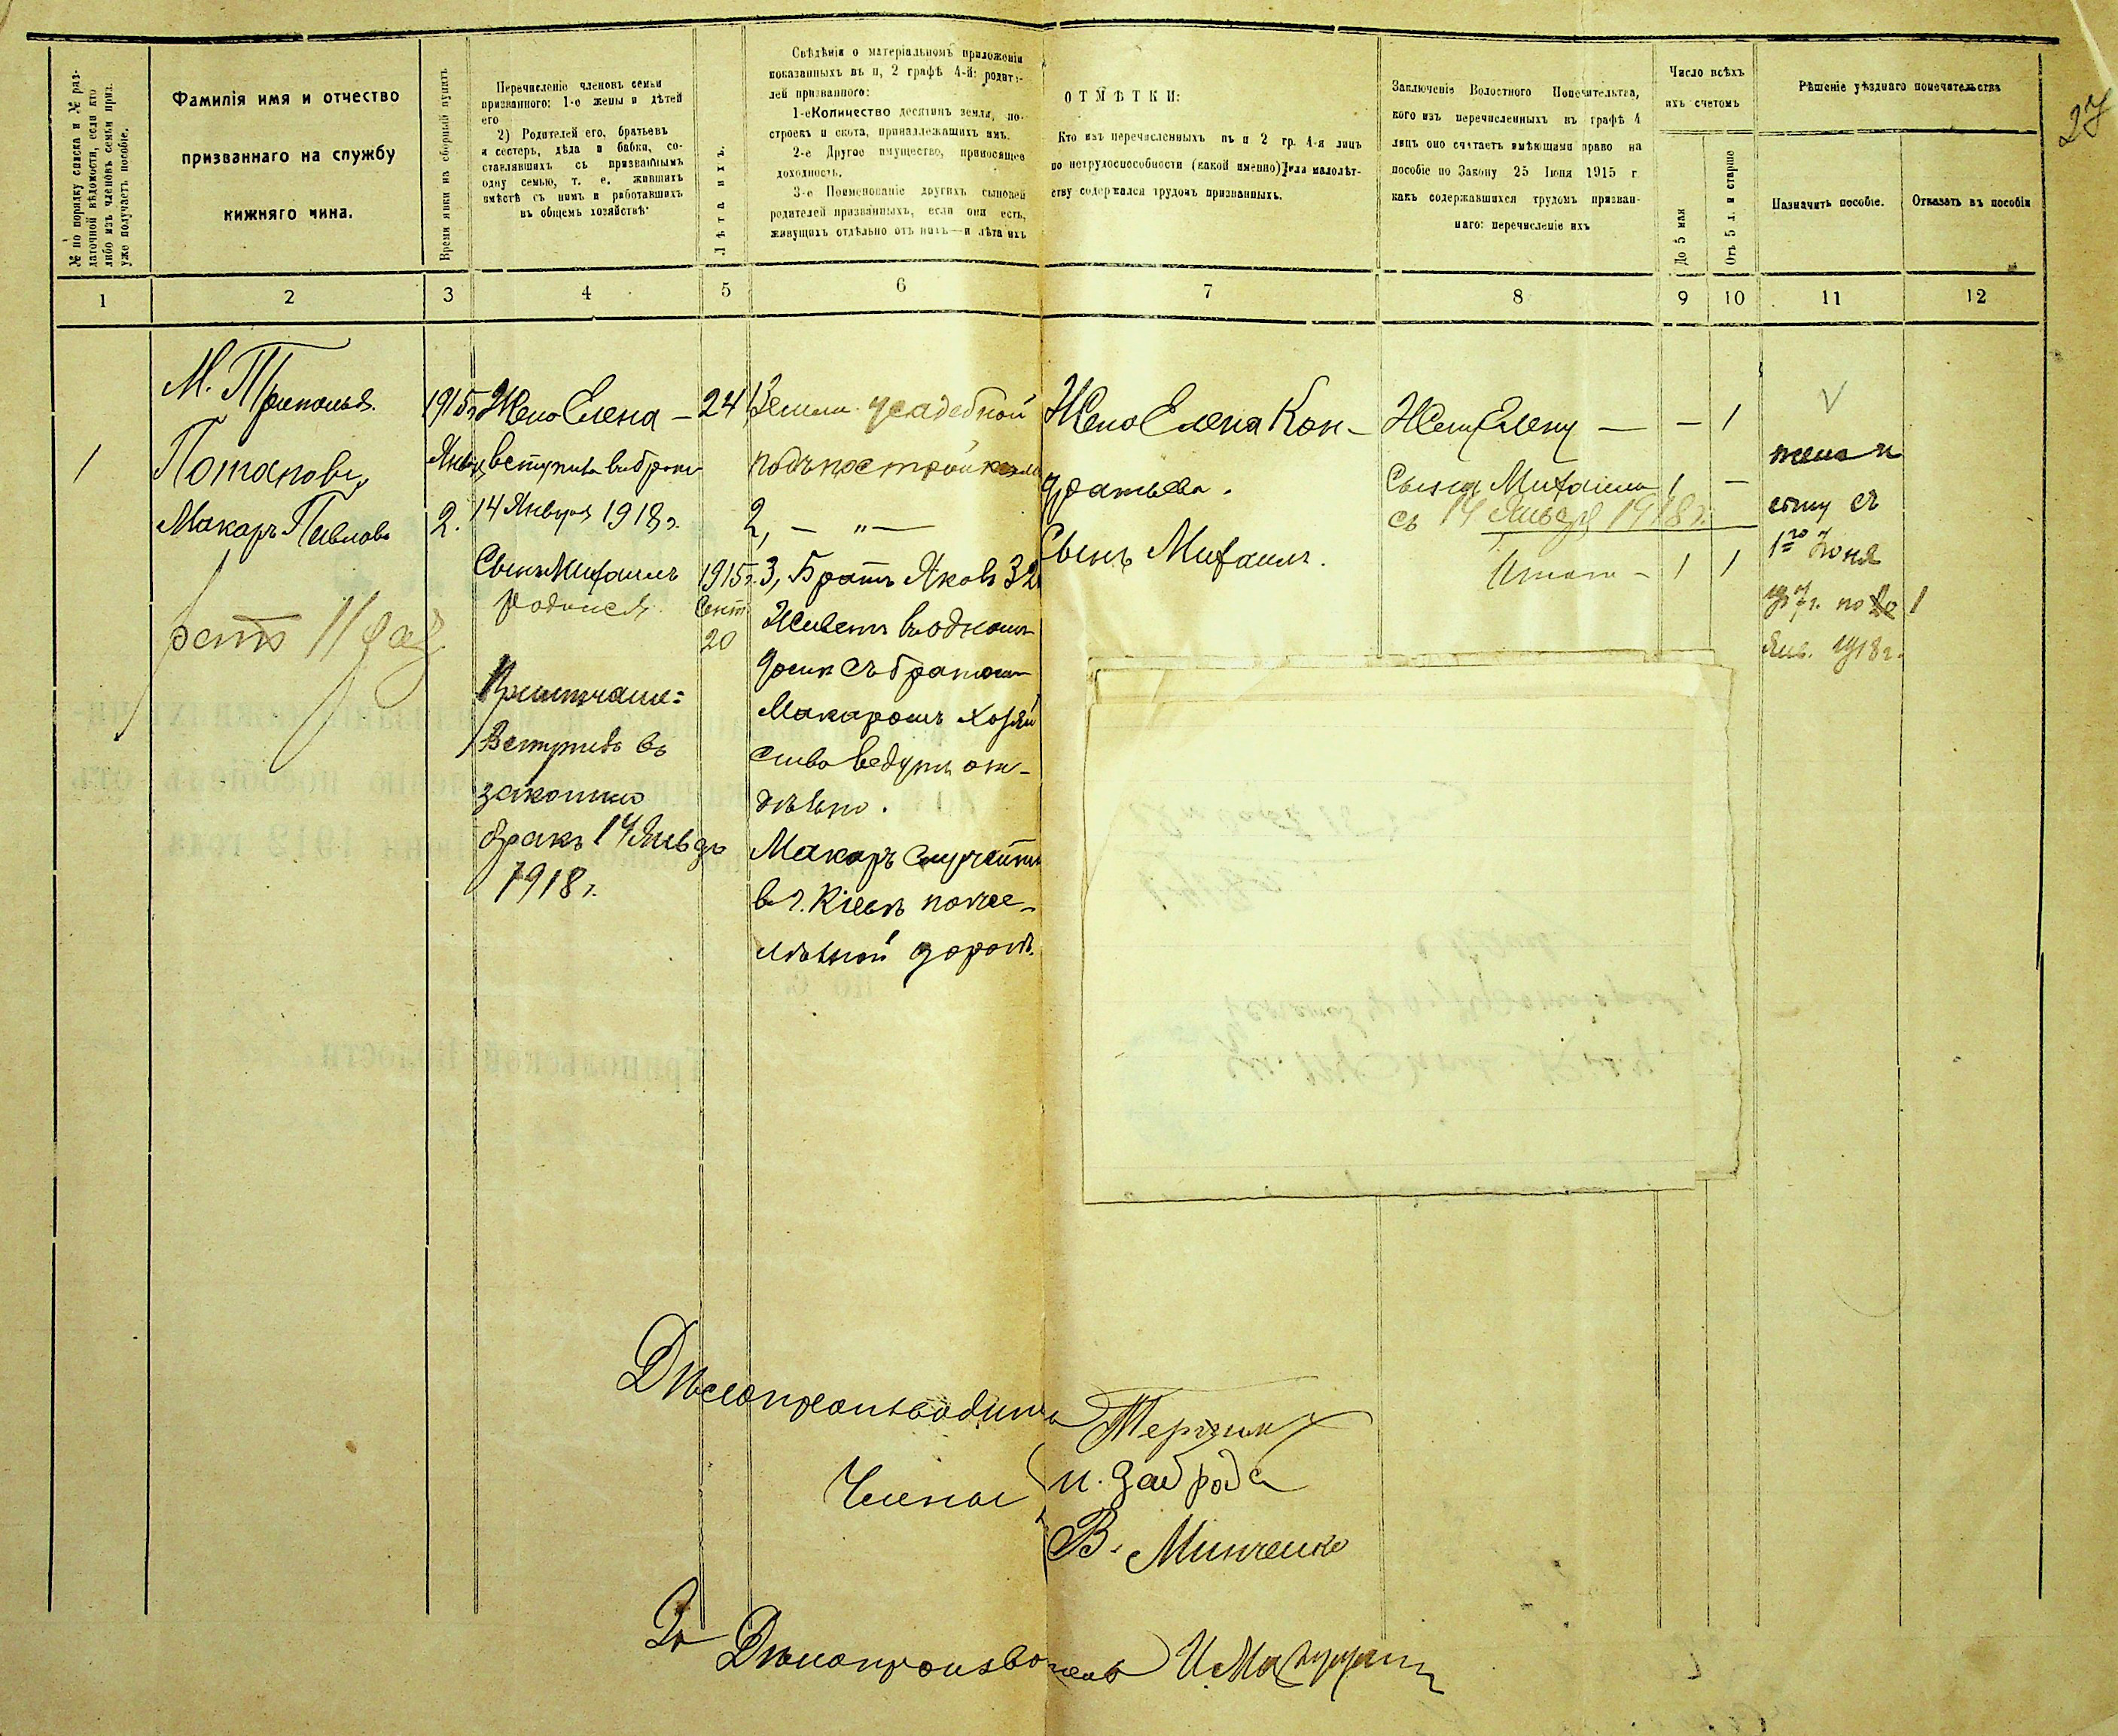 27
№ по порядку списка и № раз-
даточной вѣдомости, если кто
либо изъ членовъ семьи приз.
уже получаетъ пособіе.
Фамилія имя и отчество
призваннаго на службу
нижняго чина.
Время явки на сборный пунктъ
Перечисленіе членовъ семьи
призваннаго: 1-е жены и дѣтей
его
2) Родителей его, братьевъ
и сестеръ, дѣда и бабки, со-
ставлявшихъ съ призваннымъ
одну семью, т. е. жившихъ
вмѣстѣ съ нимъ и работавшихъ
въ общемъ хозяйствѣ
Лѣта ихъ.
Свѣдѣнія о матеріальномъ приложеніи
показанныхъ въ п, 2 графѣ 4-й: родите-
лей призваннаго:
1-е Количество десятинъ земли, по-
строекъ и скота, принадлежащихъ имъ.
2-е Другое имущество, приносящее
доходность.
3-е Поименованіе другихъ сыновей
родителей призванныхъ, если они есть,
живущихъ отдѣльно отъ нихъ—и лѣта ихъ
ОТМѢТКИ:
Кто изъ перечисленныхъ въ п 2 гр. 4-я лицъ
по нетрудоспособности (какой именно) или малолѣт-
ству содержался трудомъ призванныхъ.
Заключеніе Волостного Попечительтва,
кого изъ перечисленныхъ въ графѣ 4
лицъ оно считаетъ имѣющими право на
пособіе по Закону 25 Іюня 1915 г
какъ содержавшихся трудомъ призван-
наго: перечисленіе ихъ
Число всѣхъ
ихъ счетомъ
До 5 мая
Отъ 5 л. и старше
Рѣшеніе уѣзднаго попечительства
Назначить пособіе.
Отказать въ пособіи
1 2 3 4 5 6 7 8 9 10 11 12
М. Триполья.
1
Потаповъ
Макаръ Павловъ
1915 г
Января
2.
Жена Елена — 24
вступила въ бракъ
14 Января 1918 г.
Сынъ Михаилъ
родился
1915 г.
Сент
20
Примѣчаніе:
Вступилъ въ
законный
бракъ 14 Января
1918 г.
1, Земли усадебной
подъ постройками
2, — „ —
3, Братъ Яковъ 32
Живетъ въ одномъ
домѣ съ братомъ
Макаромъ хозяй
ство ведутъ от-
дѣльно.
Макаръ служитъ
в г. Кіевѣ по же-
лѣзной дорогѣ.
Жена Елена Кон-
дратьева.
Сынъ Михаилъ.
Жену Елену — — 1
Сына Михаила 1 —
съ 14 Января 1918 г.
Итого — 1 1
жена и
сыну съ
1го Іюня
1917 г. по 1
Янв. 1918 г.
Дѣлопроизводитель
Члены
И. Заброда
В. Минченко
За Дѣлопроизводитель